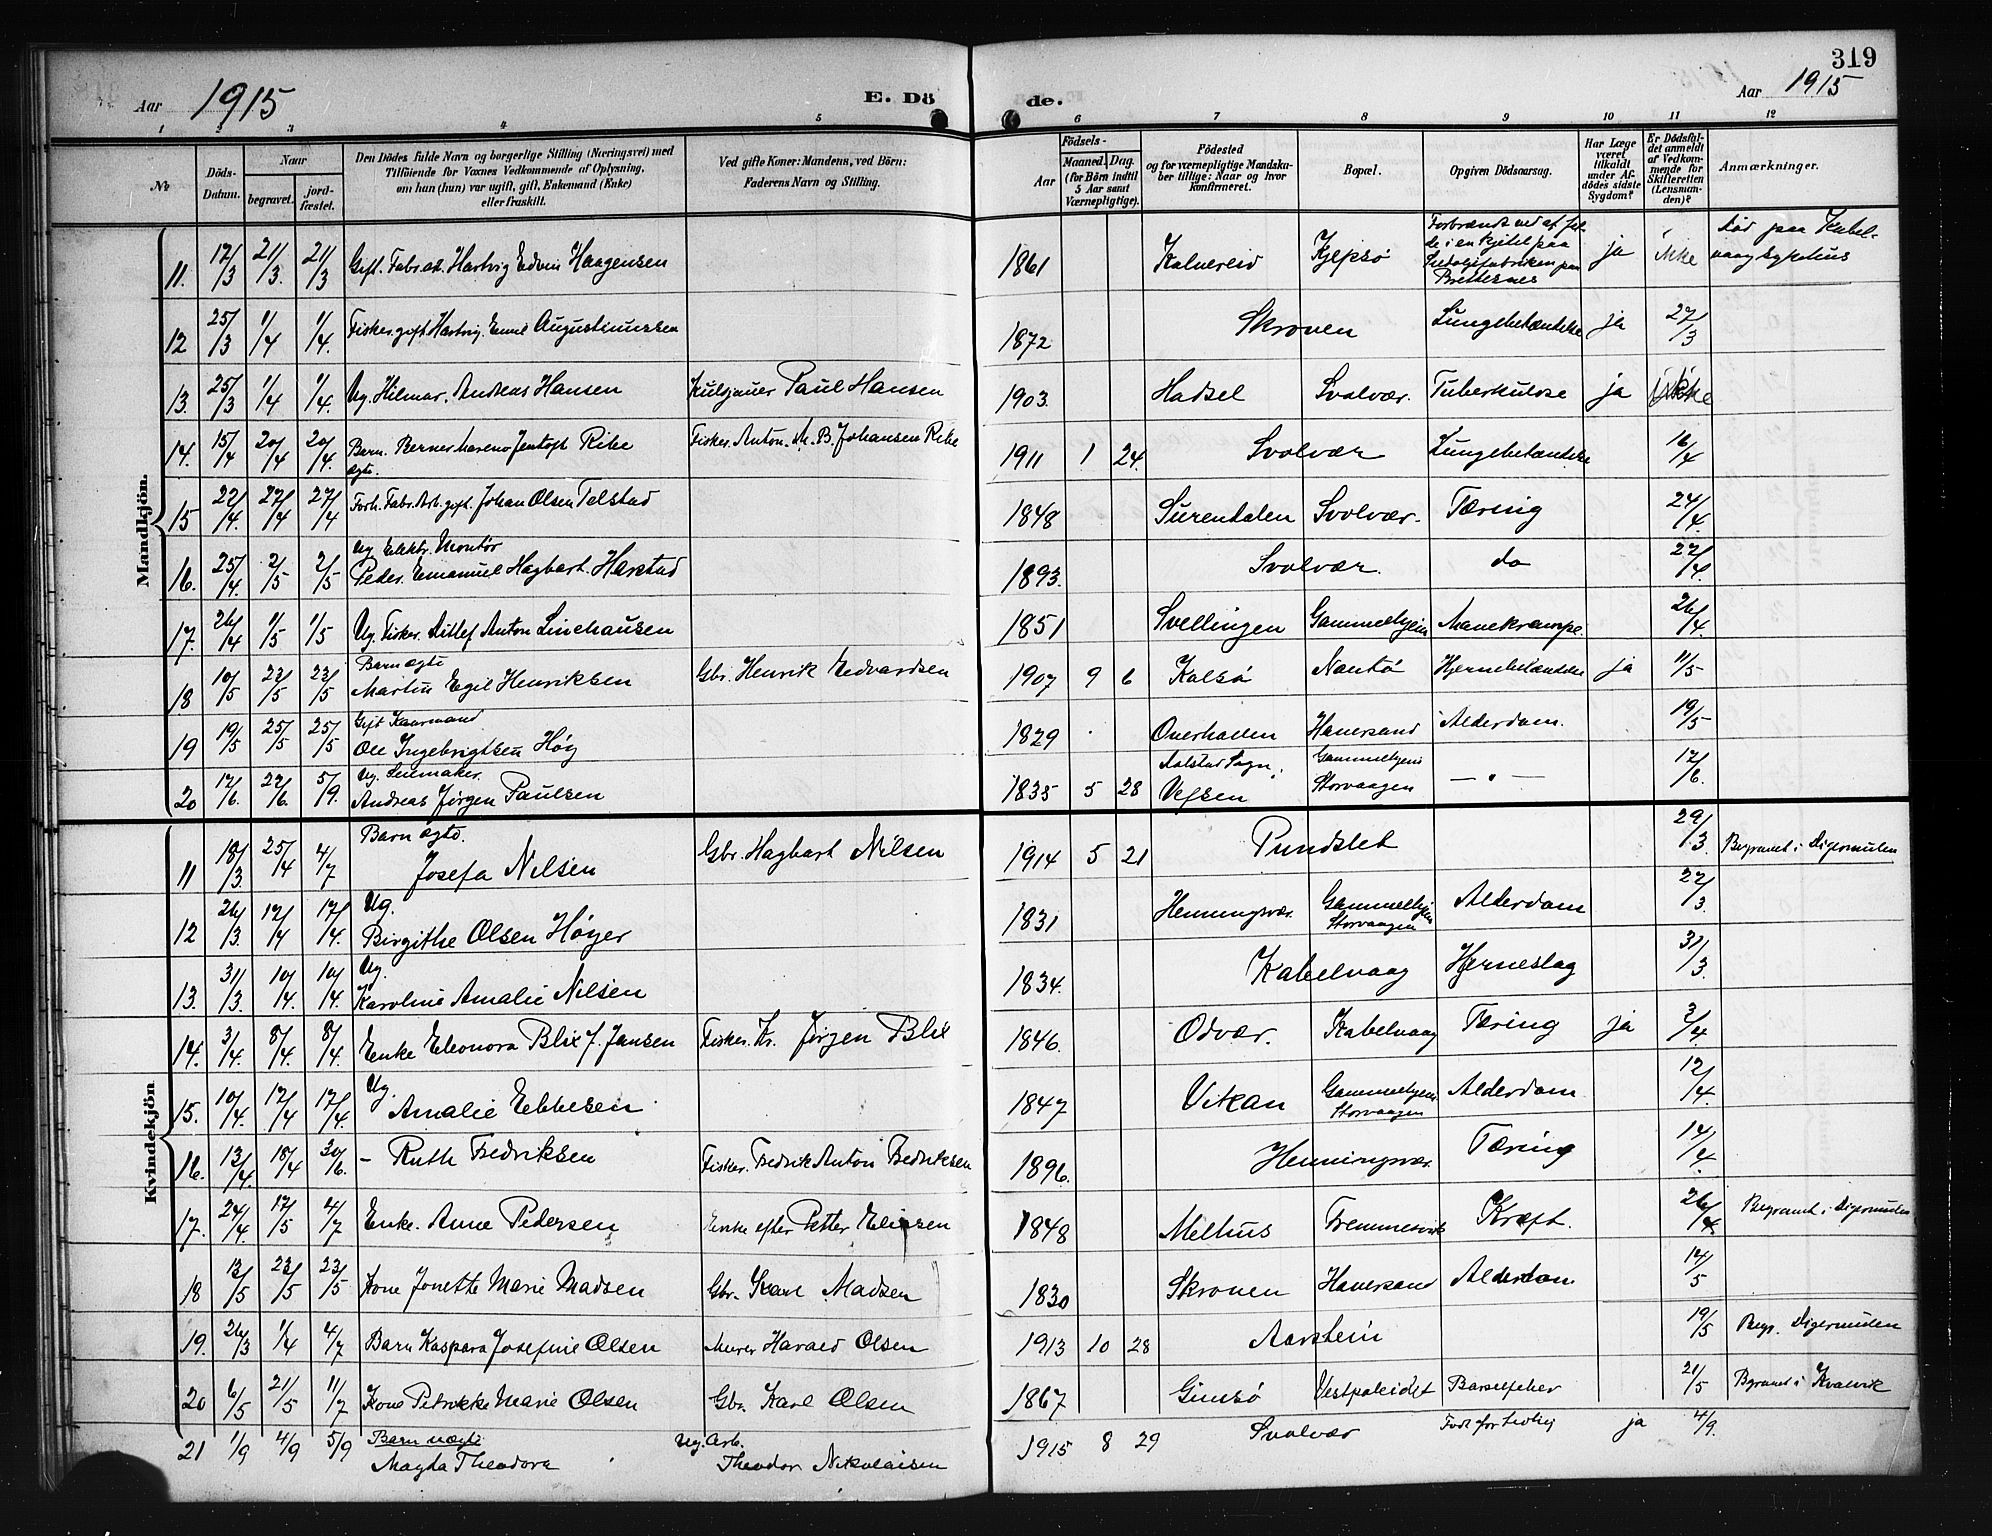 319
Aar 1915 E. Dö de. Aar 1915
1 2 3 4 5 6 7 8 9 10 11 12
No
Döds-Datum.
Naar
begravet.
jord-fæstet.
Den Dödes fulde Navn og borgerlige Stilling (Næringsvei) med
Tilföiende for Voxnes Vedkommende af Oplysning,
om han (hun) var ugift, gift, Enkemand (Enke)
eller fraskilt.
Ved gifte Koner: Mandens, ved Börn:
Faderens Navn og Stilling.
Födsels-
Aar
Maaned. Dag.
(for Börn indtil
5 Aar samt
Værnepligtige).
Födested
og for værnepligtige Mandska-
ber tillige: Naar og hvor
konfirmeret.
Bopæl.
Opgiven Dödsaarsag.
Har Læge
været
tilkaldt
under Af-
dödes sidste
Sygdom?
Er Dödsfal-
det anmeldt
af Vedkom-
mende for
Skifteretten
(Lensman-
den)?
Anmærkninger.
Mandkjön.
11. 17/3 21/3. 21/3 Gift. Fabr.arb. Hartvig Edvin Haagensen 1861 Kalvereid Kjepsø Forbrændt ved at fal-
de i en kjitel paa
Sildoljefabriken paa
Brettesnes ja ikke Død paa Kabel-
vaag sykehus
12 25/3 1/4 1/4. Fisker. gift. Hartvig. Emil Augustinussen 1872 Skroven Lungebetændelse ja 27/3
13. 25/3 1/4 1/4. Ug. Hilmar. Andreas Hansen Kulsjauer Paul Hansen 1903. Hadsel Svolvær. Tuberkulose ja ikke
14. 15/4 20/4 20/4. Barn. Berner Mareno Jentoft Ribe
ægte. Fisker. Anton. M. B. Johansen Ribe 1911 1 24. Svolvær Lungebetændelse 16/4
15 22/4. 27/4 27/4 Forh. Fabr. Arb. gift. Johan Olsen Telstad 1848 Surendalen Svolvær. Tæring 24/4.
16. 25/4. 2/5 2/5 Ug Elektr. Montør
Peder. Emanuel Hagbart. Harstad 1893. Svolvær. do 27/4.
17. 26/4 1/5 1/5 Ug. Fisker. Ditlef Anton Linehausen 1851 Svellingen Gammelhjem Mavekrampe. 26/4.
18 10/5 23/5 23/5 Barn ægte
Martin Egil Henriksen Gbr. Henrik Edvardsen 1907 9 6 Kalsø Nautø Hjernebetændelse ja 11/5
19 19/5 25/5 25/5 Gift Kaarmand
Ole Ingebrigtsen Høy 1829 Overhallen Haversand Alderdom. 19/5
20 12/6. 22/6 5/9. Ug.
Andreas Jørgen Paulsen 1835 5 28 Alstad Sogn,
Vefsen Gammelhjem
Storvaagen — " — 12/6.
Kvindekjön
11 18/3 25/4 4/7 Barn ægte.
Josefa Nilsen Gbr. Hagbart Nilsen 1914 5 21 Pundslet 29/3. Begravet i Digermulen
12 26/3. 17/4 17/4. Ug.
Birgithe Olsen Høyer 1831 Henningsvær. Gammelhjem
Storvaagen Alderdom 27/3.
13. 31/3 10/4. 10/4. Ug.
Karoline Amalie Nilsen 1834. Kabelvaag Hjerneslag 31/3.
14. 3/4. 8/4 8/4 Enke Eleonora Blix f. Jansen Fisker. Kr. Jørgen Blix 1846. Odvær. Kabelvaag Tæring ja 3/4
15. 10/4. 17/4 17/4 Ug
Amalie Ebbesen 1847 Vikan Gammelhjem
Storvaagen Alderdom 12/4.
16. 13/4. 18/4 30/6. — Ruth Fredriksen Fisker. Fredrik Anton Fredriksen 1896. Henningsvær. Tæring 14/4.
17. 24/4. 17/5 4/7 Enke. Anne Pedersen Enke efter Petter Eliassen 1848 Melhus Tremmesvik Kræft. 26/4. Begravet i Digermulen
18 13/5 23/5 23/5 Kone Jonette Marie Madsen Gbr. Karl Madsen 1830 Skroven Haversand Alderdom 14/5
19. 26/3 1/4 4/7 Barn Kaspara Josefine Olsen Murer Harald Olsen 1913 10 28 Aarstein 19/5 Begr. Digermulen
20 6/5 21/5 11/7 Kone Petrikke Marie Olsen Gbr. Karl Olsen 1867 Gimsø Vestpoleidet Barselfeber 21/5 Begravet i Kvalvik
21 1/9 4/9 5/9 Barn uægte
Magda Theodora Ug. Arb.
Theodor Nikolaisen 1915 8 29 Svolvær Født for tidlig ja 4/9.